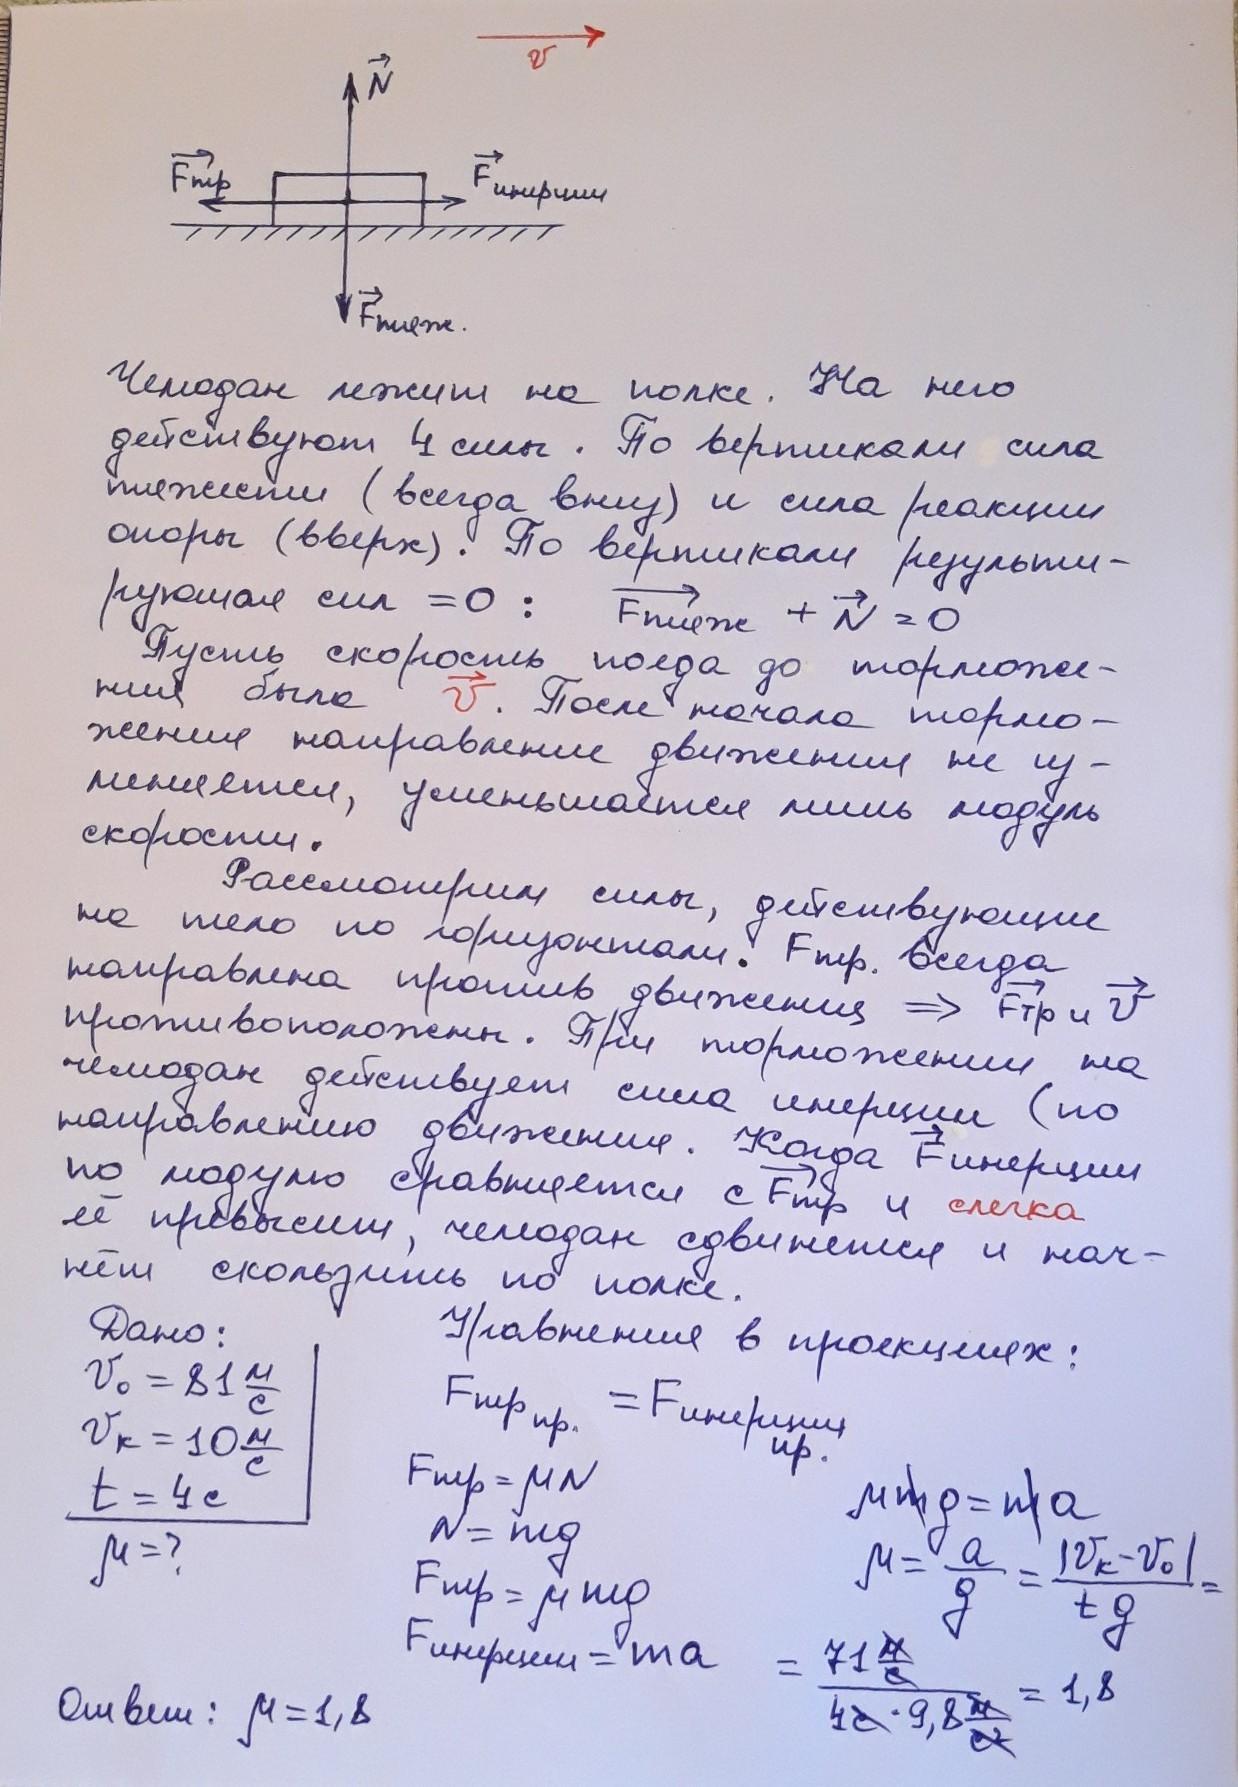 v
N
Fтр
Fинерции
Fтяж.
Чемодан лежит на полке. На него
действуют 4 силы. По вертикали сила
тяжести (всегда вниз) и сила реакции
опоры (вверх). По вертикали результи-
рующая сил = 0 : Fтяж + N = 0
Пусть скорость поезда до торможе-
ния была v. После начала тормо-
жения направление движения не из-
меняется, уменьшается лишь модуль
скорости.
Рассмотрим силы, действующие
на тело по горизонтали. Fтр. всегда
направлена против движения => Fтр и v
противоположны. При торможении на
чемодан действует сила инерции (по
направлению движения. Когда Fинерции
по модулю сравняется с Fтр и слегка
её превысит, чемодан сдвинется и нач-
нёт скользить по полке.
Дано:
v₀ = 81 м/с
vк = 10 м/с
t = 4 с
μ = ?
Уравнения в проекциях:
Fтр пр. = Fинерции пр.
Fтр = μN
N = mg
Fтр = μmg
Fинерции = ma
μmg = ma
μ = a/g = |vк - v₀|/tg =
= 71 м/с / 4с · 9,8 м/с² = 1,8
Ответ: μ = 1,8